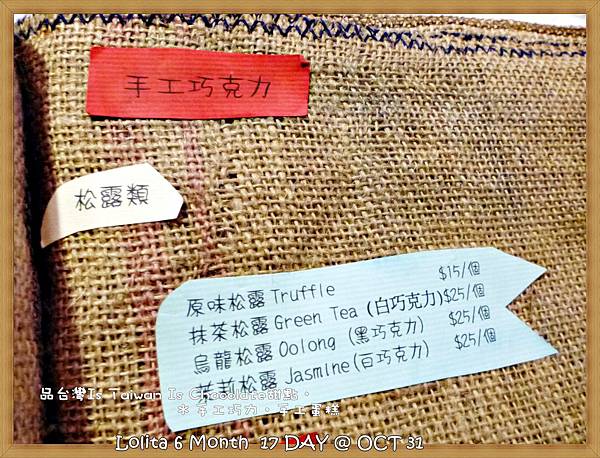 手工巧克力
松露類
原味松露 Truffle $15/個
抹茶松露 Green Tea (白巧克力) $25/個
烏龍松露 Oolong (黑巧克力) $25/個
茉莉松露 Jasmine (白巧克力) $25/個
品台灣Is Taiwan Is Chocolate甜點。
米手工巧力。手工蛋糕
Lolita 6 Month 17 DAY @ OCT 31